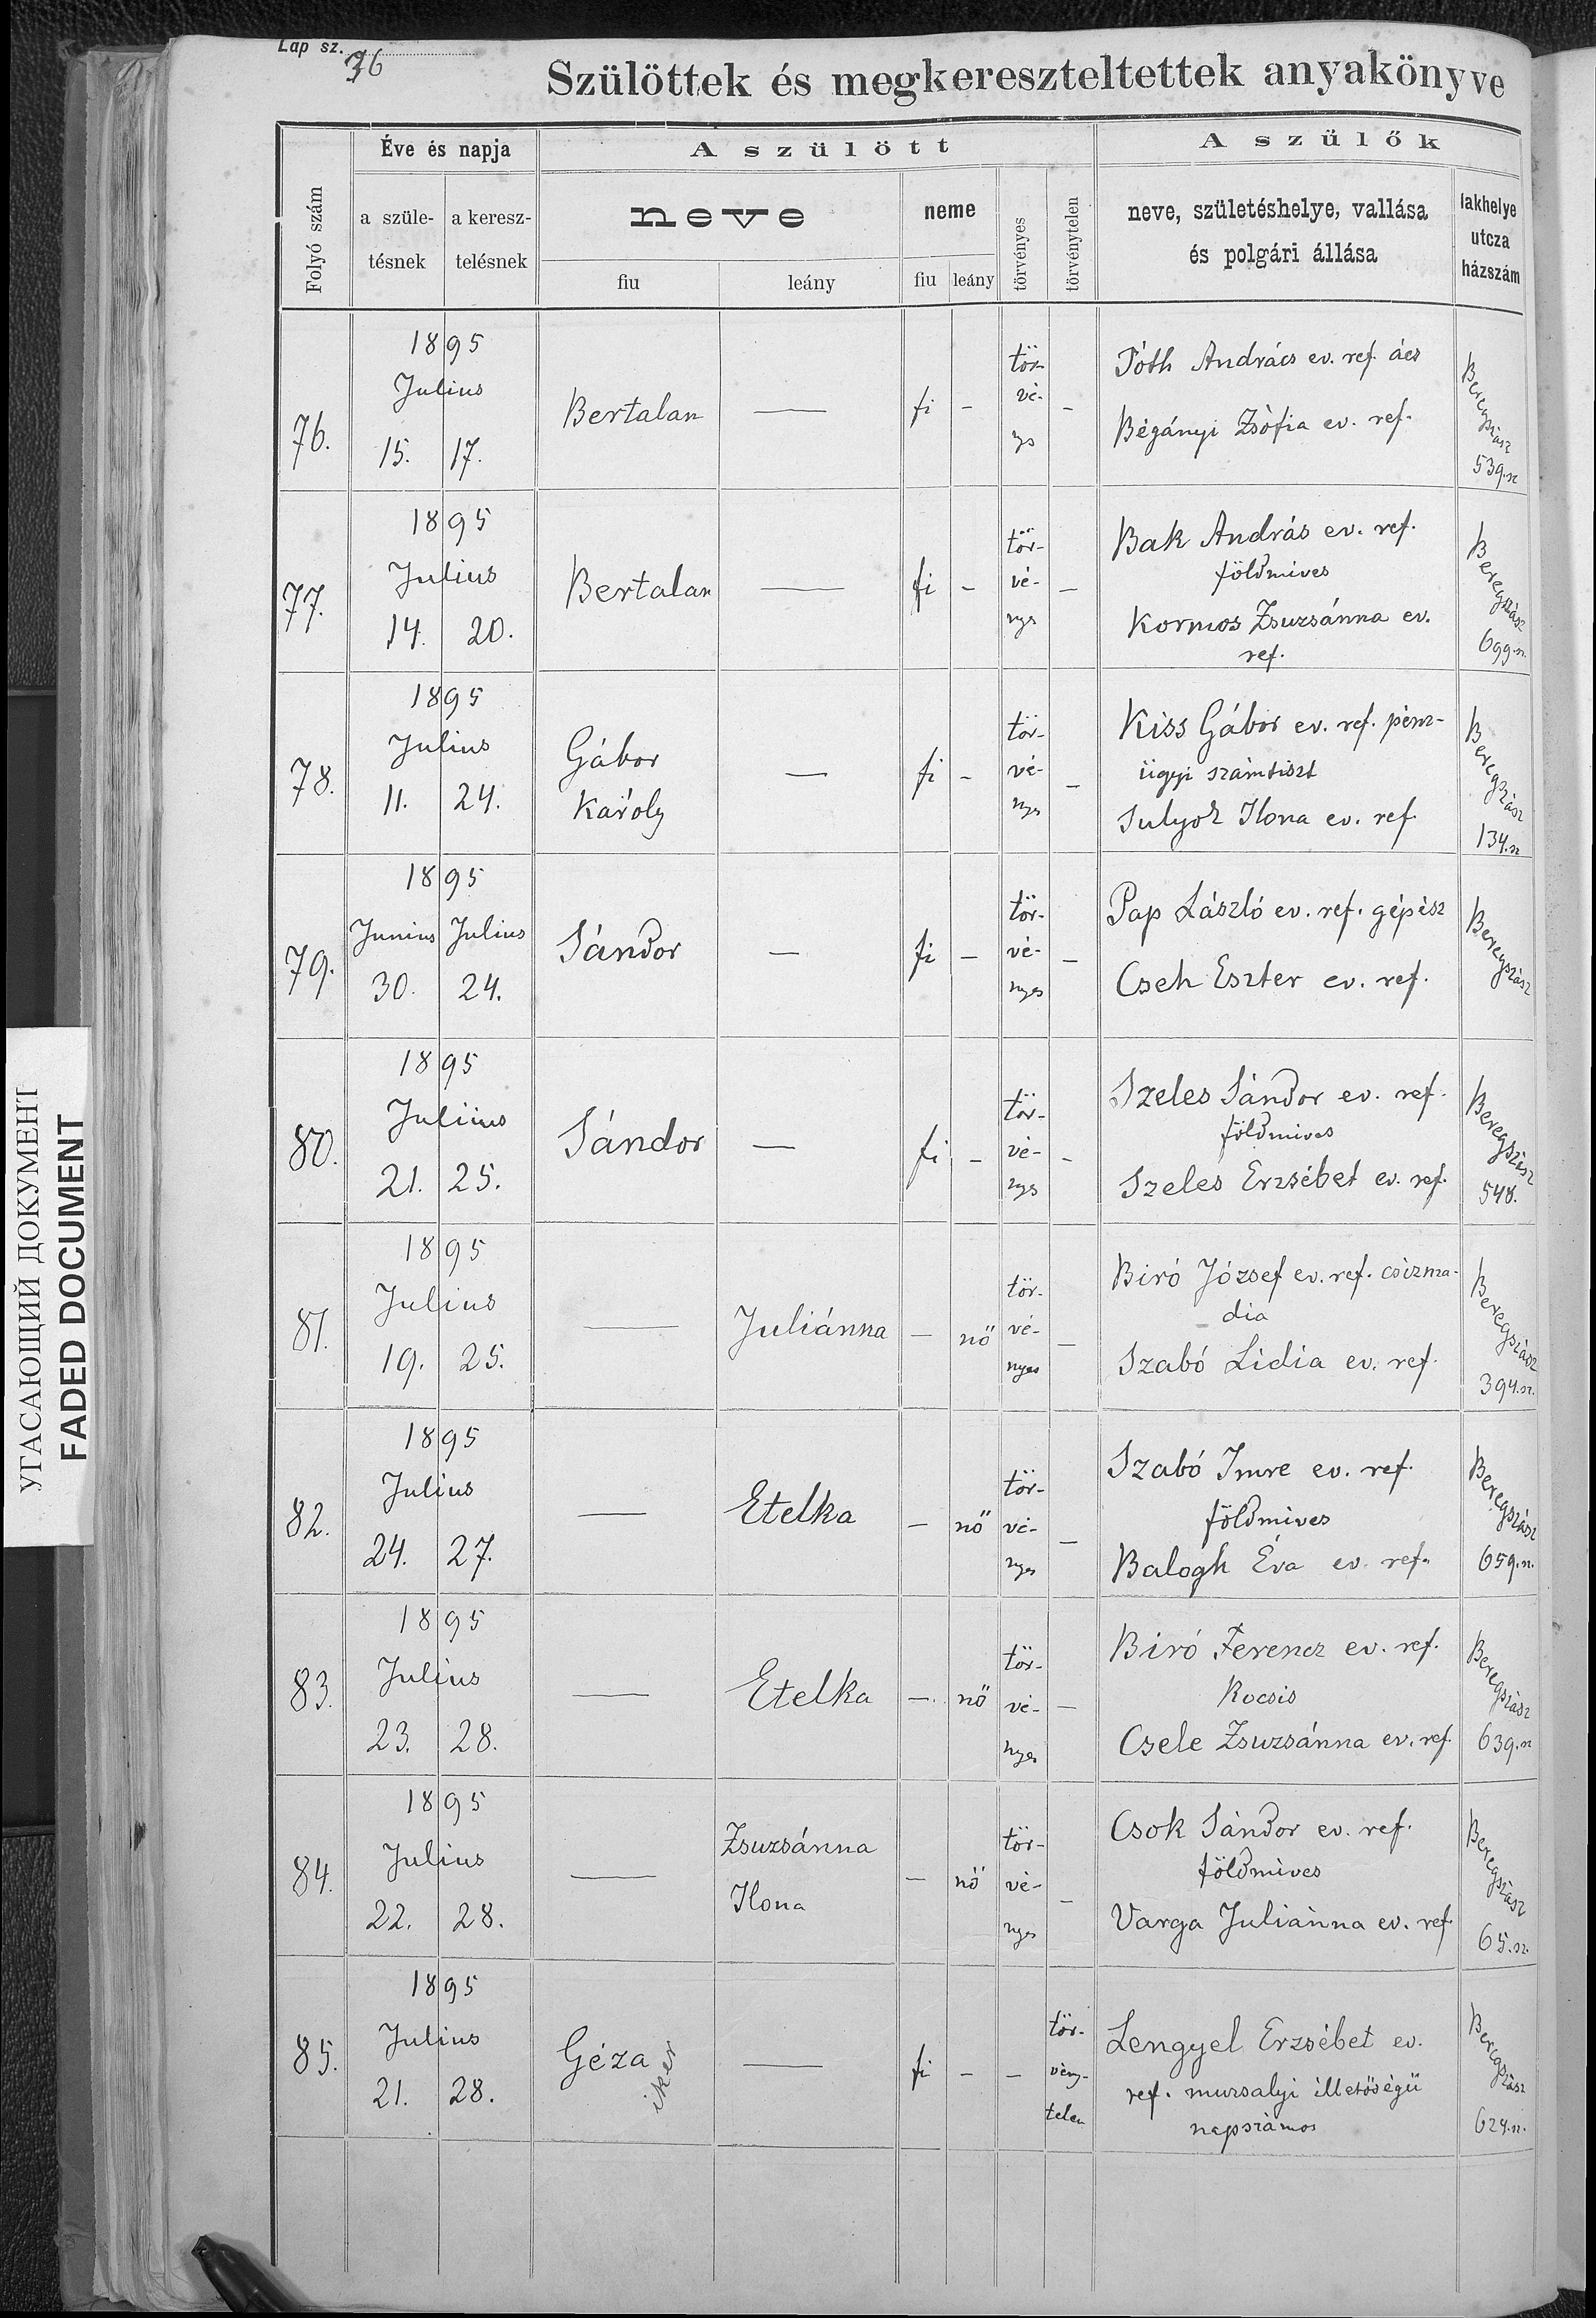 Lap sz. 36
Szülöttek és megkereszteltettek anyakönyve
Folyó szám
Éve és napja
a szüle-
tésnek
a keresz-
telésnek
A szülött
neve
fiu
leány
neme
fiu
leány
törvényes
törvénytelen
A szülők
neve, születéshelye, vallása
és polgári állása
lakhelye
utcza
házszám
76.
1895
Julius
15. 17.
Bertalan —
fi - tör-
vé-
ys -
Tóth András ev. ref. ács
Bégányi Zsófia ev. ref.
Beregszász
539. sz
77.
1895
Julius
14. 20.
Bertalan —
fi - tör-
vé-
nys -
Bak András ev. ref.
földmives
Kormos Zsuzsánna ev.
ref.
Beregszász
699. sz.
78.
1895
Julius
11. 24.
Gábor
Károly —
fi - tör-
vé-
nys -
Kiss Gábor ev. ref. pénz-
ügyi számtiszt
Sulyok Ilona ev. ref.
Beregszász
134. sz
79.
1895
Junius Julius
30. 24.
Sándor —
fi - tör-
vé-
nyes -
Pap László ev. ref. gépész
Cseh Eszter ev. ref.
Beregszász
80.
1895
Julius
21. 25.
Sándor —
fi - tör-
vé-
nys -
Szeles Sándor ev. ref.
földmives
Szeles Erzsébet ev. ref.
Beregszász
548.
81.
1895
Julius
19. 25.
— Juliánna
- nő tör-
vé-
nyes -
Biró József ev. ref. csizma-
dia
Szabó Lidia ev. ref.
Beregszász
394. sz.
82.
1895
Julius
24. 27.
— Etelka
- nő tör-
vé-
nyes -
Szabó Imre ev. ref.
földmives
Balogh Éva ev. ref.
Beregszász
659. sz.
83.
1895
Julius
23. 28.
— Etelka
- nő tör-
vé-
nyes -
Biró Ferencz ev. ref.
kocsis
Csele Zsuzsánna ev. ref.
Beregszász
639. sz
84.
1895
Julius
22. 28.
— Zsuzsánna
Ilona
- nő tör-
vé-
nyes -
Csok Sándor ev. ref.
földmives
Varga Juliánna ev. ref.
Beregszász
65. sz.
85.
1895
Julius
21. 28.
Géza iker —
fi - - tör-
vény-
telen
Lengyel Erzsébet ev.
ref. munsalyi illetőségü
napszámos
Beregszász
624. sz.
УГАСАЮЩИЙ ДОКУМЕНТ
FADED DOCUMENT